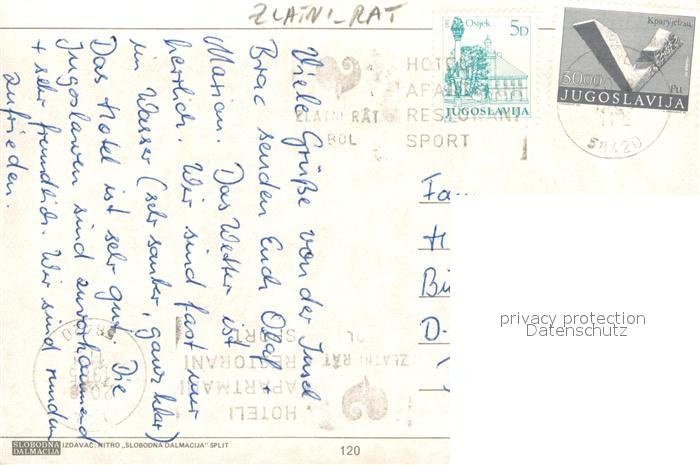 ZLATNI-RAT
Viele Grüße von der Insel
Brac senden Euch Olaf +
Marion. Das Wetter ist
herrlich. Wir sind fast nur
im Wasser (sehr sauber, ganz klar)
Das Hotel ist sehr gut. Die
Jugoslawen sind zuvorkommend
+ sehr freundlich. Wir sind rundum
zufrieden.
Osijek
5D
JUGOSLAVIJA
50.00
JUGOSLAVIJA
HOTELI
APARTMANI
RESTORANI
SPORT
ZLATNI RAT
BOL
58420
Fa
H
Bü
D-
privacy protection
Datenschutz
HOTELI
APARTMANI
RESTORANI
SPORT
ZLATNI RAT
58420
SLOBODNA
DALMACIJA
IZDAVAČ: NITRO „SLOBODNA DALMACIJA" SPLIT
120